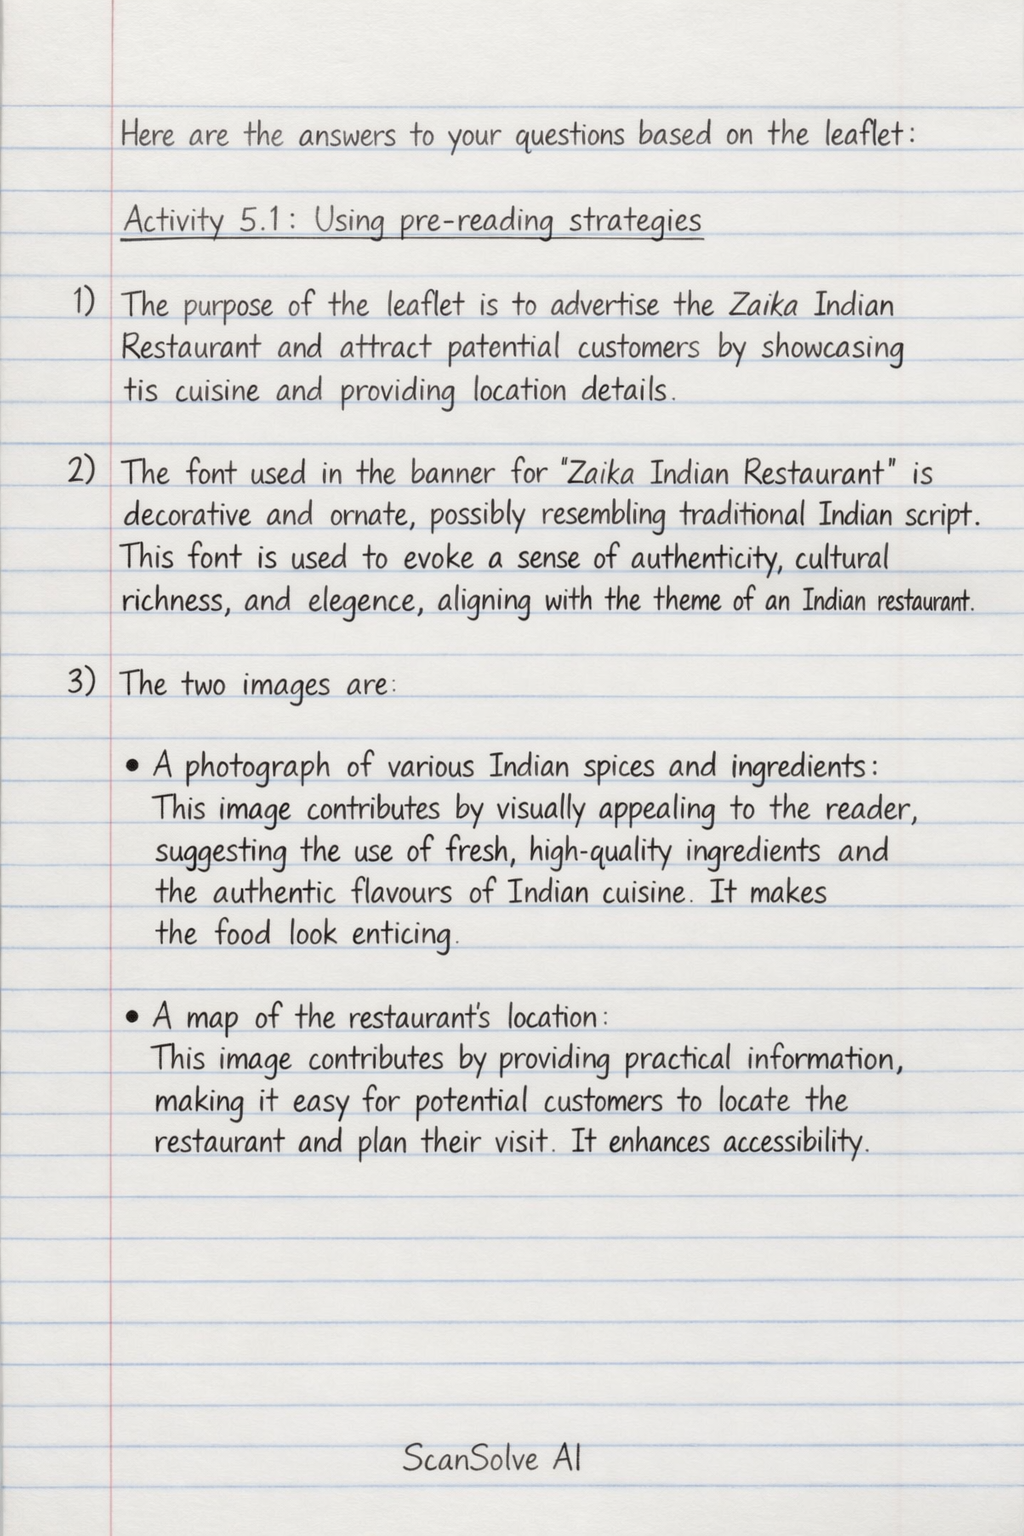 Here are the answers to your questions based on the leaflet:
Activity 5.1: Using pre-reading strategies
1) The purpose of the leaflet is to advertise the Zaika Indian
Restaurant and attract patential customers by showcasing
tis cuisine and providing location details.
2) The font used in the banner for "Zaika Indian Restaurant" is
decorative and ornate, possibly resembling traditional Indian script.
This font is used to evoke a sense of authenticity, cultural
richness, and elegence, aligning with the theme of an Indian restaurant.
3) The two images are:
• A photograph of various Indian spices and ingredients:
This image contributes by visually appealing to the reader,
suggesting the use of fresh, high-quality ingredients and
the authentic flavours of Indian cuisine. It makes
the food look enticing.
• A map of the restaurant's location:
This image contributes by providing practical information,
making it easy for potential customers to locate the
restaurant and plan their visit. It enhances accessibility.
ScanSolve AI